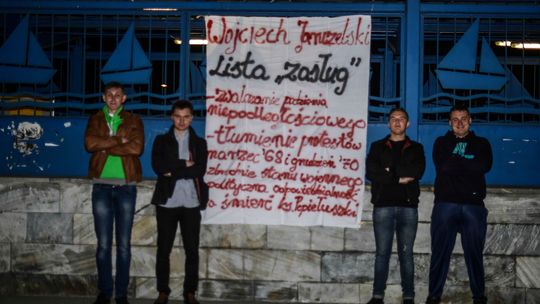 Wojciech Jaruzelski
Lista „zasług”
- zwalczanie podziemia
niepodległościowego
- tłumienie protestów
marzec '68 i grudzień '70
zbrodnie stanu wojennego
polityczna odpowiedzialność
za śmierć ks. Popiełuszki